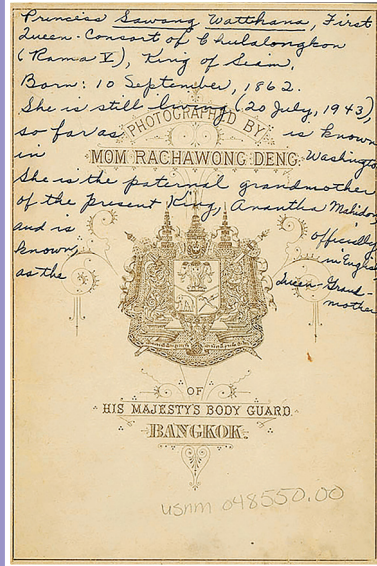 Princess Sawang Watthana, First
Queen-Consort of Chulalongkon
(Rama V), King of Siam.
Born: 10 September, 1862.
She is still living (20 July, 1943),
so far as is known
PHOTOGRAPHED BY
in Washington
MOM RACHAWONG DENG
She is the paternal grandmother
of the present King, Anantha Mahidon,
and is officially
known, in English
as the Queen-Grand-
mother
OF
HIS MAJESTY'S BODY GUARD.
BANGKOK.
USNM 048550.00